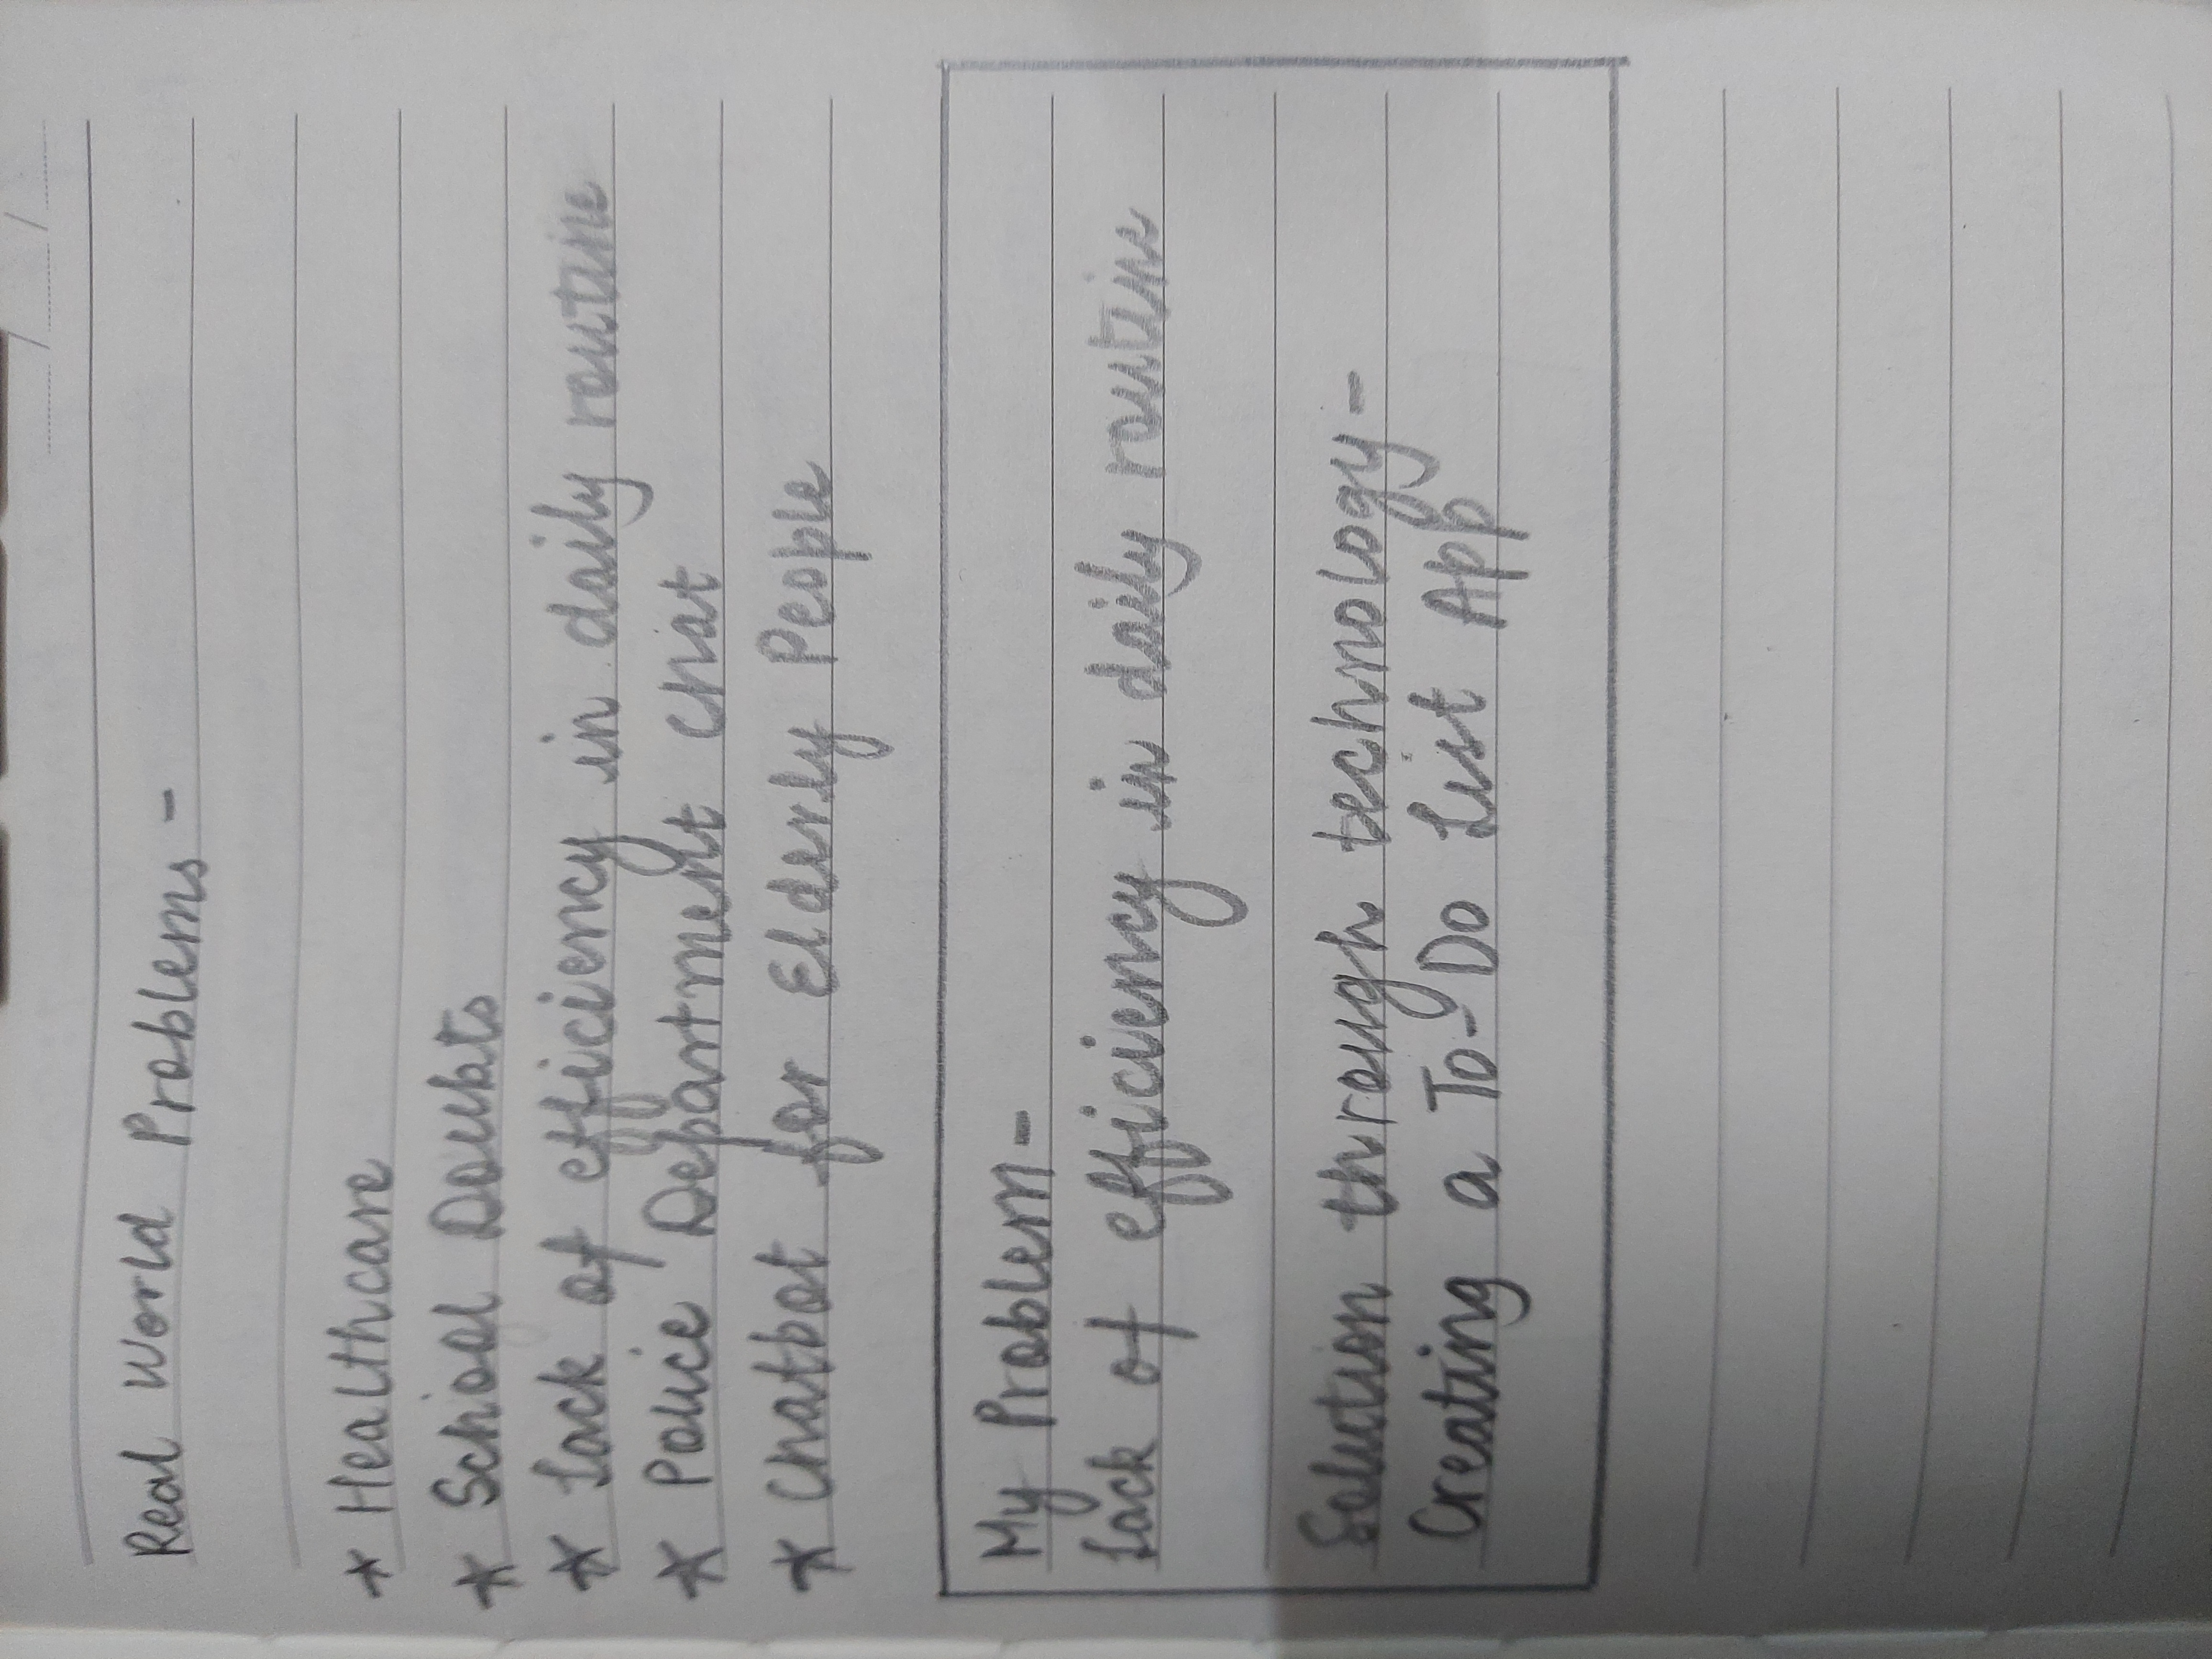 Real World Problems -
* Healthcare
* School Doubts
* Lack of efficiency in daily routine
* Police Department Chat
* Chatbot for Elderly People
My Problem -
Lack of efficiency in daily routine
Solution through technology -
Creating a To-Do List App